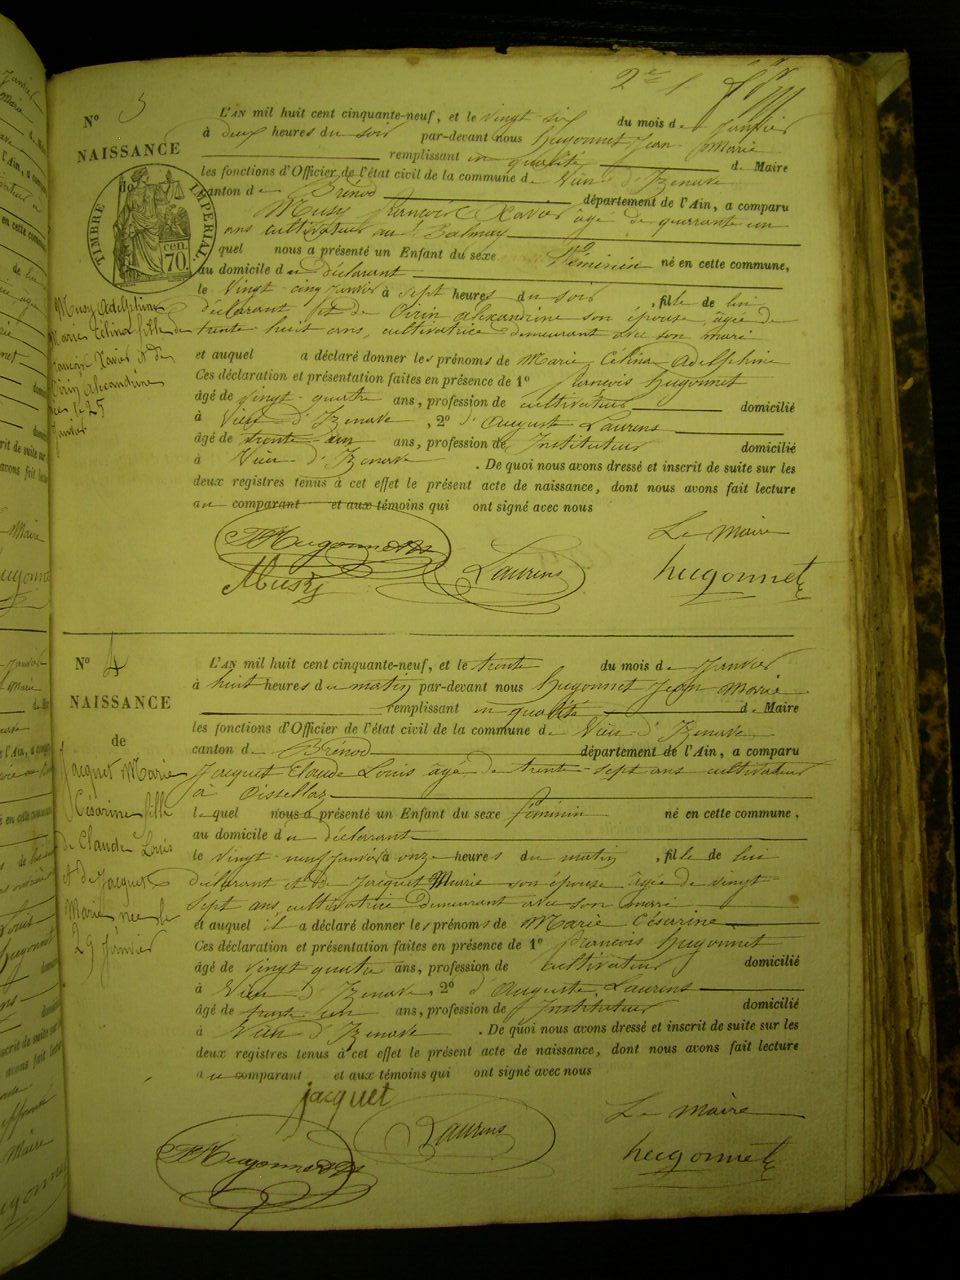 2e
No 3
NAISSANCE
TIMBRE IMPÉRIAL
70 cen.
Musy Adelphine
Marie Célina fille de
François Xavier et de
Alexandrine
née le 25
Janvier
L'AN mil huit cent cinquante-neuf, et le vingt six du mois de Janvier
à deux heures du soir par-devant nous Hugonnet Jean Marie
remplissant en qualité de Maire
les fonctions d'Officier de l'état civil de la commune de Vieu d'Izenave
canton de Brénod département de l'Ain, a comparu
Musy François Xavier âgé de quarante un
ans cultivateur au Balmay
quel nous a présenté un Enfant du sexe féminin né en cette commune,
au domicile du déclarant
le vingt cinq janvier à sept heures du soir, fille de lui
déclarant, et de Alexandrine son épouse, âgée de
trente huit ans, cultivatrice demeurant avec son mari
et auquel a déclaré donner les prénoms de Marie Célina Adelphine
Ces déclaration et présentation faites en présence de 1o François Hugonnet
âgé de vingt-quatre ans, profession de cultivateur domicilié
à Vieu d'Izenave, 2o d'Auguste Laurens
âgé de trente-un ans, profession de Instituteur domicilié
à Vieu d'Izenave. De quoi nous avons dressé et inscrit de suite sur les
deux registres tenus à cet effet le présent acte de naissance, dont nous avons fait lecture
au comparant et aux témoins qui ont signé avec nous
Hugonnet Le Maire
Musy Laurens hugonnet
No 4
NAISSANCE
de
Jacquet Marie
Césarine fille
de Claude Louis
et de Jacquet
Marie née le
29 Janvier
L'AN mil huit cent cinquante-neuf, et le trente du mois de Janvier
à huit heures du matin par-devant nous Hugonnet Jean Marie
remplissant en qualité de Maire
les fonctions d'Officier de l'état civil de la commune de Vieu d'Izenave
canton de Brénod département de l'Ain, a comparu
Jacquet Claude Louis âgé de trente-sept ans cultivateur
à Oisselaz
lequel nous a présenté un Enfant du sexe féminin né en cette commune,
au domicile du déclarant
le vingt-neuf janvier à onze heures du matin, fille de lui
déclarant et de Jacquet Marie son épouse âgée de vingt
sept ans, cultivatrice demeurant avec son mari
et auquel il a déclaré donner les prénoms de Marie Césarine
Ces déclaration et présentation faites en présence de 1o François Hugonnet
âgé de vingt quatre ans, profession de cultivateur domicilié
à Vieu d'Izenave, 2o d'Auguste Laurens
âgé de trente-un ans, profession de Instituteur domicilié
à Vieu d'Izenave. De quoi nous avons dressé et inscrit de suite sur les
deux registres tenus à cet effet le présent acte de naissance, dont nous avons fait lecture
au comparant et aux témoins qui ont signé avec nous
jacquet Le Maire
Hugonnet Laurens hugonnet